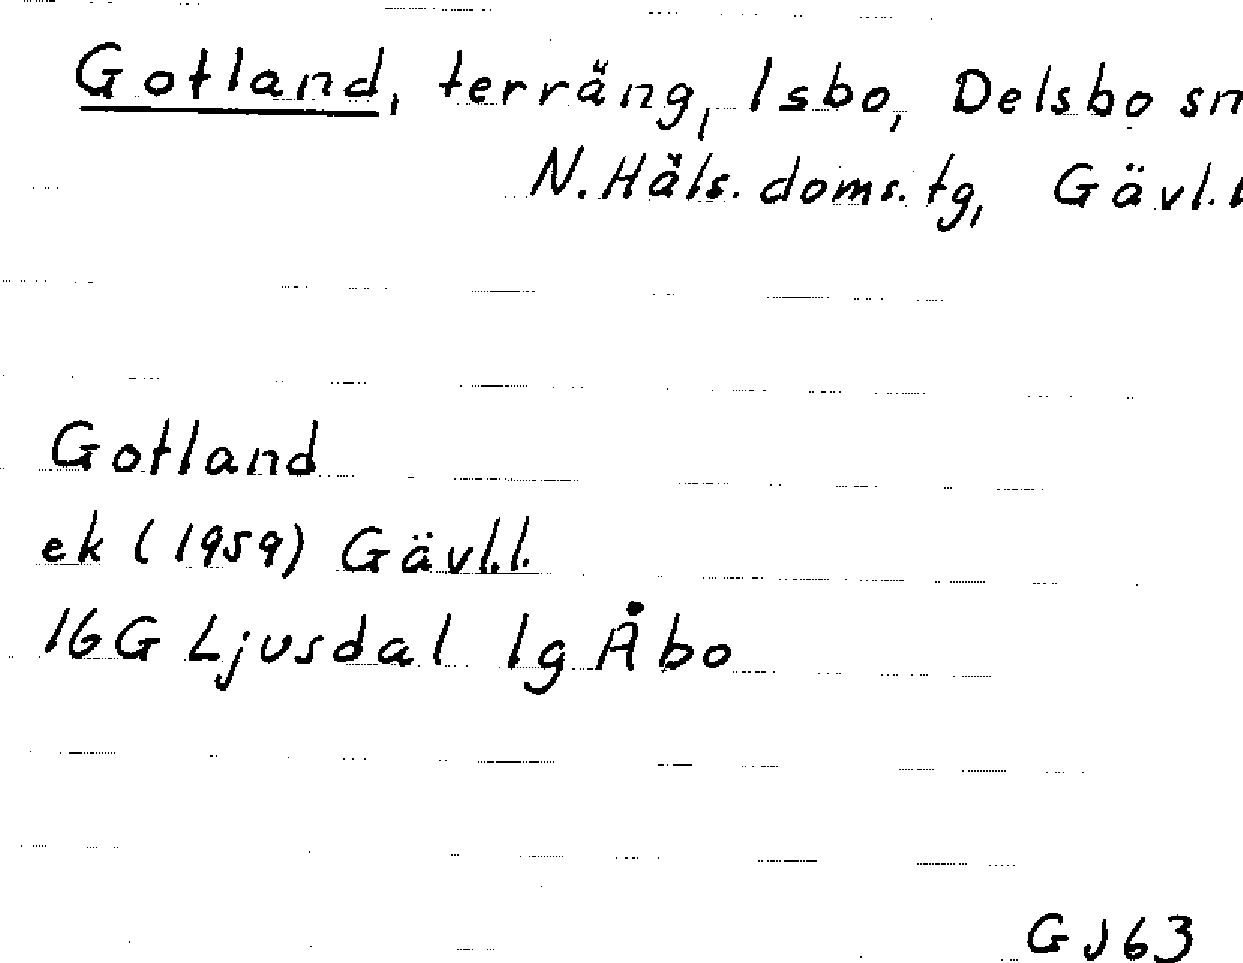 Gotland, terräng, Isbo, Delsbo sn
N. Häls. doms. tg, Gävl. l
Gotland
ek (1959) Gävl.l.
16G Ljusdal 1g Åbo
GJ63